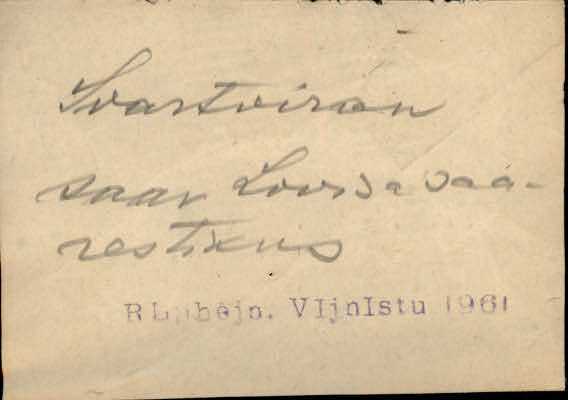 Svartviran
saar Lovisa saa-
restikus
RLahejn. VIjnIstu 1961